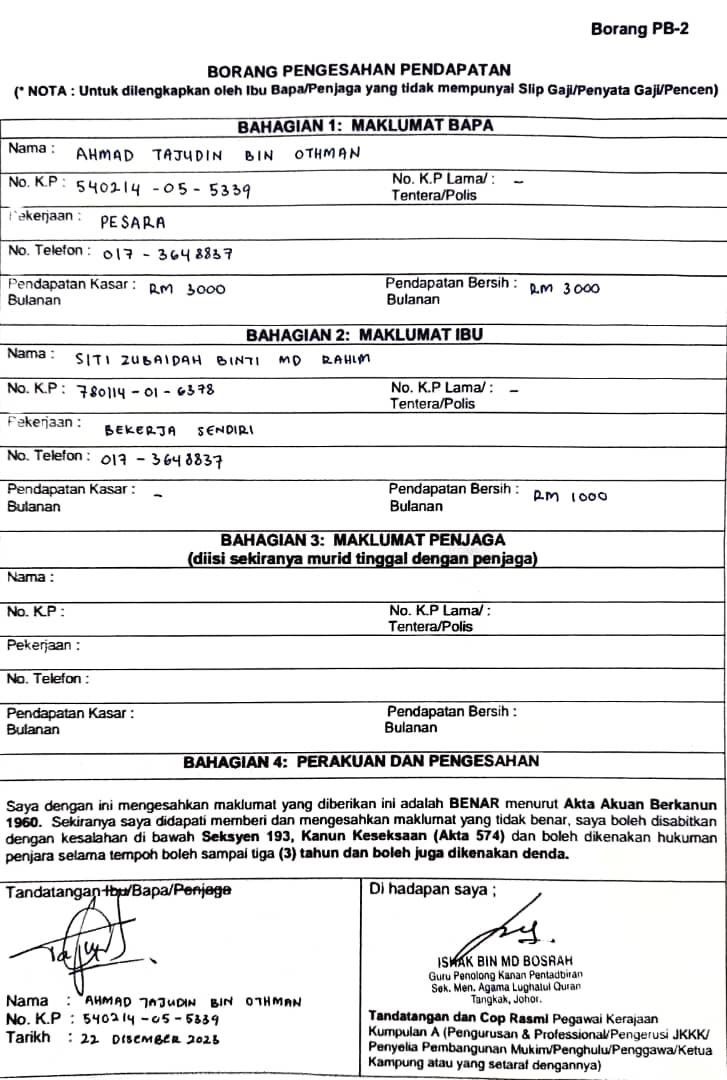 Borang PB-2
BORANG PENGESAHAN PENDAPATAN
(* NOTA : Untuk dilengkapkan oleh Ibu Bapa/Penjaga yang tidak mempunyai Slip Gaji/Penyata Gaji/Pencen)
BAHAGIAN 1: MAKLUMAT BAPA
Nama : AHMAD TAJUDIN BIN OTHMAN
No. K.P : 540214 - 05 - 5339 No. K.P Lama/ : -
Tentera/Polis
Pekerjaan : PESARA
No. Telefon : 017 - 3648837
Pendapatan Kasar : RM 3000 Pendapatan Bersih : RM 3000
Bulanan Bulanan
BAHAGIAN 2: MAKLUMAT IBU
Nama : SITI ZUBAIDAH BINTI MD RAHIM
No. K.P : 780114 - 01 - 6378 No. K.P Lama/ : -
Tentera/Polis
Pekerjaan : BEKERJA SENDIRI
No. Telefon : 017 - 3648837
Pendapatan Kasar : - Pendapatan Bersih : RM 1000
Bulanan Bulanan
BAHAGIAN 3: MAKLUMAT PENJAGA
(diisi sekiranya murid tinggal dengan penjaga)
Nama :
No. K.P : No. K.P Lama/ :
Tentera/Polis
Pekerjaan :
No. Telefon :
Pendapatan Kasar : Pendapatan Bersih :
Bulanan Bulanan
BAHAGIAN 4: PERAKUAN DAN PENGESAHAN
Saya dengan ini mengesahkan maklumat yang diberikan ini adalah BENAR menurut Akta Akuan Berkanun
1960. Sekiranya saya didapati memberi dan mengesahkan maklumat yang tidak benar, saya boleh disabitkan
dengan kesalahan di bawah Seksyen 193, Kanun Keseksaan (Akta 574) dan boleh dikenakan hukuman
penjara selama tempoh boleh sampai tiga (3) tahun dan boleh juga dikenakan denda.
Tandatangan Ibu/Bapa/Penjaga
Nama : AHMAD TAJUDIN BIN OTHMAN
No. K.P : 540214 - 05 - 5339
Tarikh : 22 DISEMBER 2023
Di hadapan saya ;
ISHAK BIN MD BOSRAH
Guru Penolong Kanan Pentadbiran
Sek. Men. Agama Lughatul Quran
Tangkak, Johor.
Tandatangan dan Cop Rasmi Pegawai Kerajaan
Kumpulan A (Pengurusan & Professional/Pengerusi JKKK/
Penyelia Pembangunan Mukim/Penghulu/Penggawa/Ketua
Kampung atau yang setaraf dengannya)